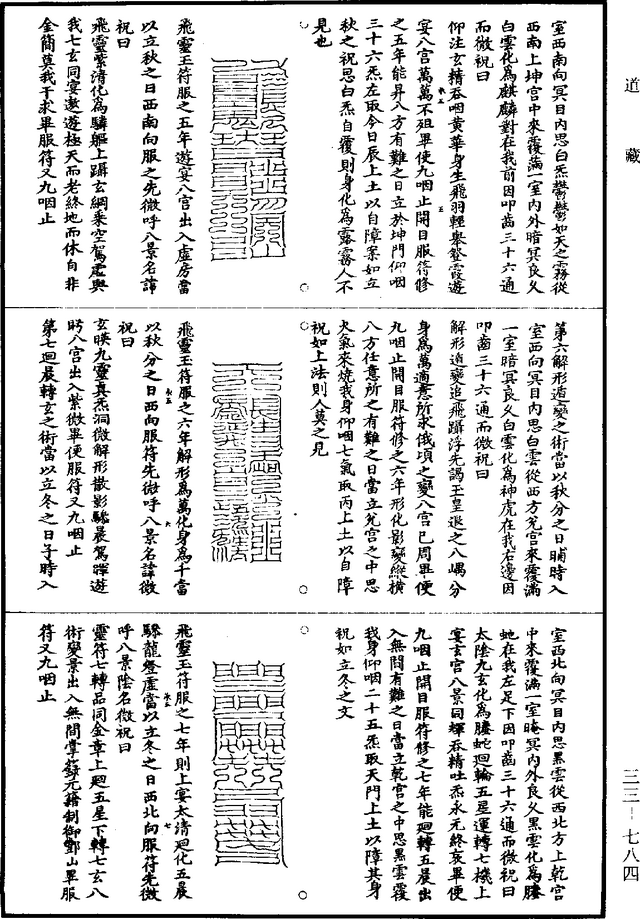 道藏
室西南向冥目內思白炁鬱鬱如天之霧從
西南上坤宮中來覆滿一室內外暗冥良久
白雲化為麒麟對在我前因叩齒三十六通
而微祝曰
仰注玄精吞咽黃華身生飛羽輕舉登霞遊
宴八宮萬萬不徂畢便九咽止開目服符修
之五年能昇八方有難之日立於坤門仰咽
三十六炁左取今日辰上土以自障案如立
秋之祝思白炁自覆則身化為露霧人不
見也
飛靈玉符服之五年遊宴八宮出入虛房當
以立秋之日西南向服之先微呼八景名諱
祝曰
飛靈紫清化為驎軀上躡玄綱乘空駕虛與
我七玄同宴遨遊極天而老終地而休自非
金簡莫我干求畢服符又九咽止
第六解形遁變之術當以秋分之日晡時入
室西向冥目內思白雲從西方兌宮來覆滿
一室暗冥良久白雲化為神虎在我右邊因
叩齒三十六通而微祝曰
解形遁變追飛躡浮先謁玉皇退之八嵎分
身為萬適意所求俄頃之變八宮已周畢便
九咽止開目服符修之六年形化影變縱橫
八方任意所之有難之日當立兌宮之中思
火氣來燒我身仰咽七氣取丙上土以自障
祝如上法則人莫之見
飛靈玉符服之六年解形為萬化身為千當
以秋分之日西向服符先微呼八景名諱微
祝曰
玄映九靈真炁洞微解形散影驂晨駕暉遊
眄八宮出入紫微畢便服符又九咽止
第七迴晨轉玄之術當以立冬之日子時入
室西北向冥目內思黑雲從西北方上乾宮
中來覆滿一室晻冥內外良久黑雲化為騰
虵在我左足下因叩齒三十六通而微祝曰
太陰九玄化為騰蛇迴輪五星運轉七機上
宴玄宮八景同輝吞精吐炁永无終哀畢便
九咽止開目服符修之七年能迴轉五晨出
入無間有難之日當立乾宮之中思黑雲覆
我身仰咽二十五炁取天門上土以障其身
祝如立冬之文
飛靈玉符服之七年則上宴太清迴化五晨
驂龍登虛當以立冬之日西北向服符先微
呼八景陰名微祝曰
靈符七轉品同金章上迴五星下轉七玄八
術變景出入無間掌錄元籍制御酆山畢服
符又九咽止
三三—七八四